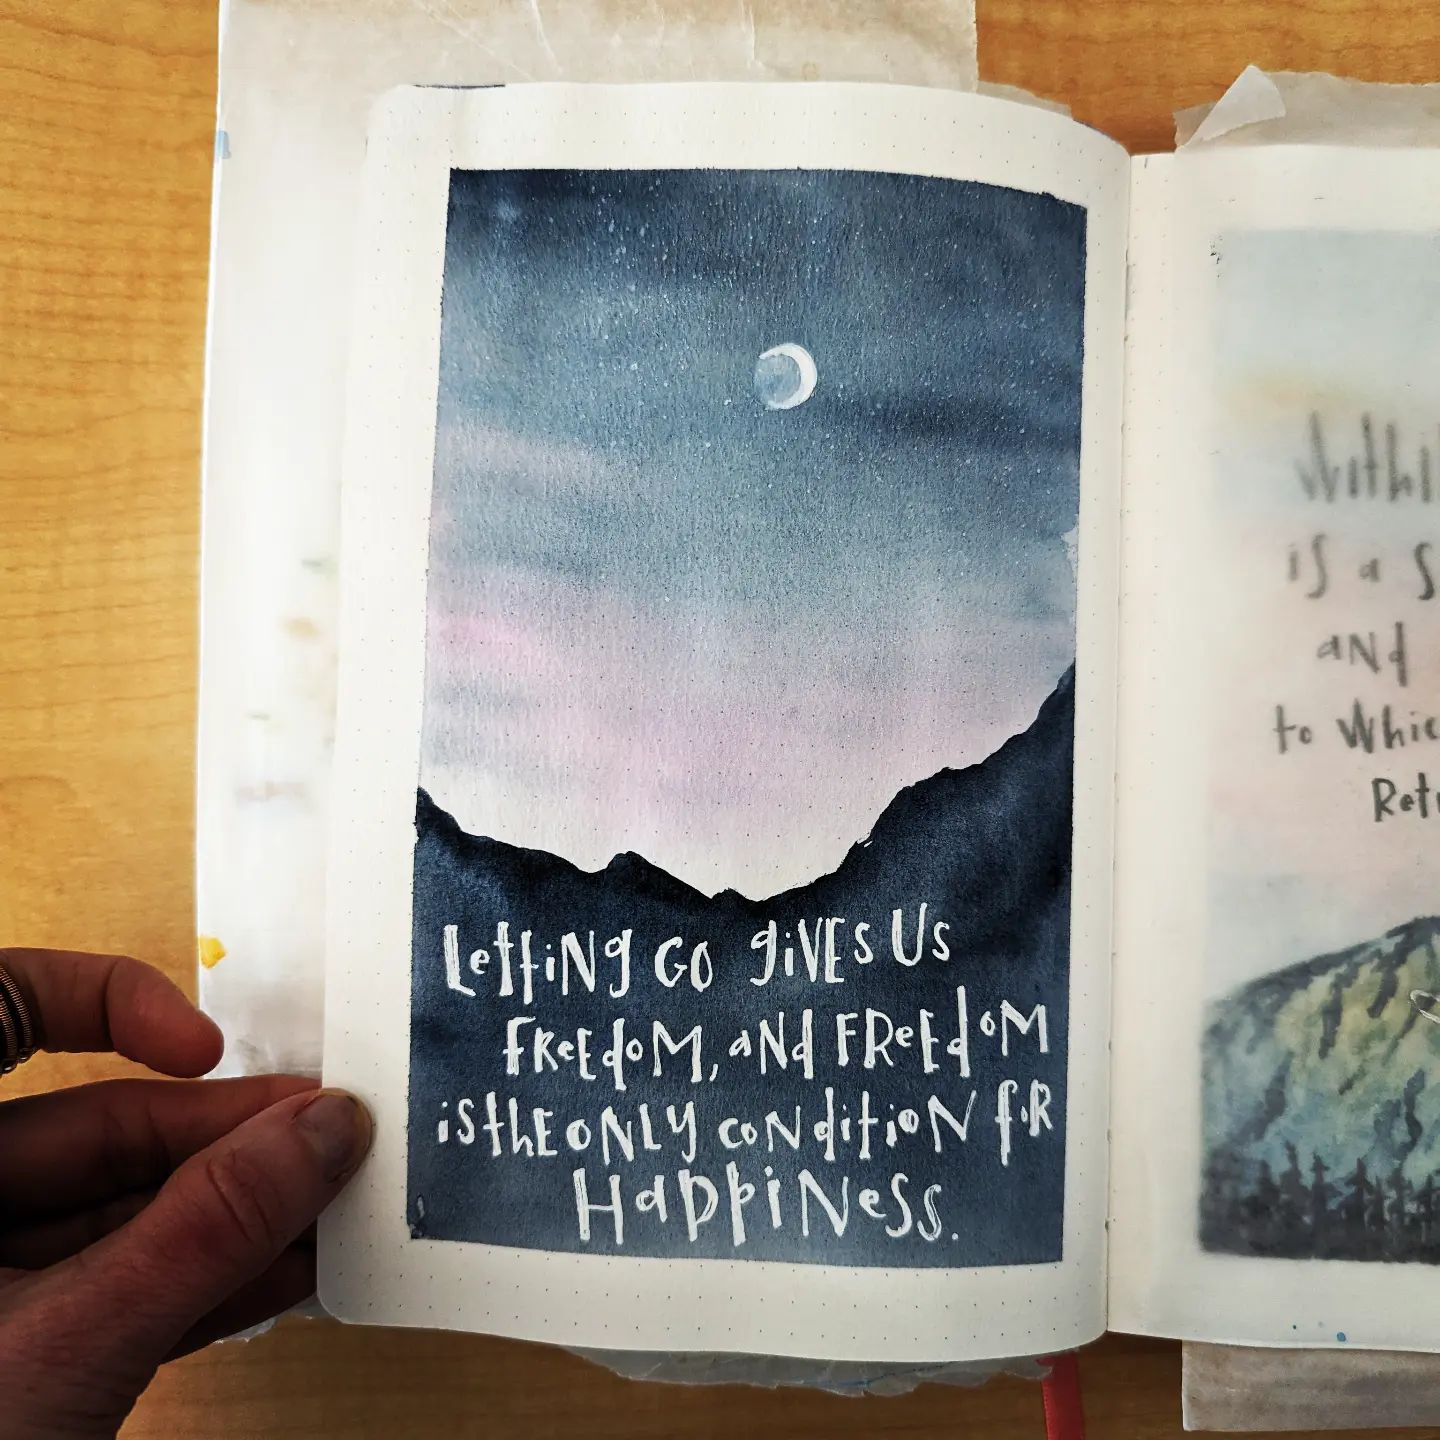 Letting go gives us
freedom, and freedom
is the only condition for
Happiness.
is a
and
to